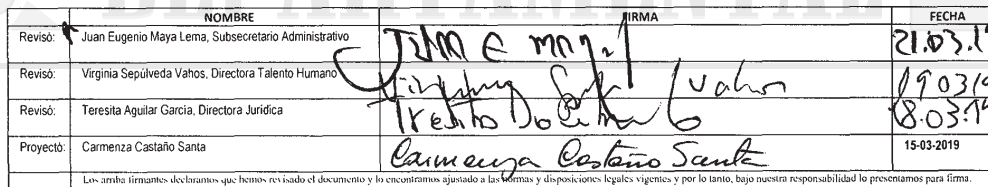 DEPARTAMENTAL
NOMBRE FIRMA FECHA
Revisó: Juan Eugenio Maya Lema, Subsecretario Administrativo Juan E May 21.03.19
Revisó: Virginia Sepúlveda Vahos, Directora Talento Humano Vahos 190319
Revisó: Teresita Aguilar García, Directora Jurídica 18.03.19
Proyectó: Carmenza Castaño Santa Carmenza Castaño Santa 15-03-2019
Los arriba firmantes declaramos que hemos revisado el documento y lo encontramos ajustado a las normas y disposiciones legales vigentes y por lo tanto, bajo nuestra responsabilidad lo presentamos para firma.